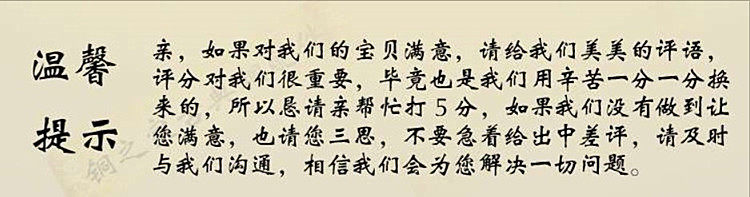 温馨
提示
亲，如果对我们的宝贝满意，请给我们美美的评语，
评分对我们很重要，毕竟也是我们用辛苦一分一分换
来的，所以恳请亲帮忙打5分，如果我们没有做到让
您满意，也请您三思，不要急着给出中差评，请及时
与我们沟通，相信我们会为您解决一切问题。